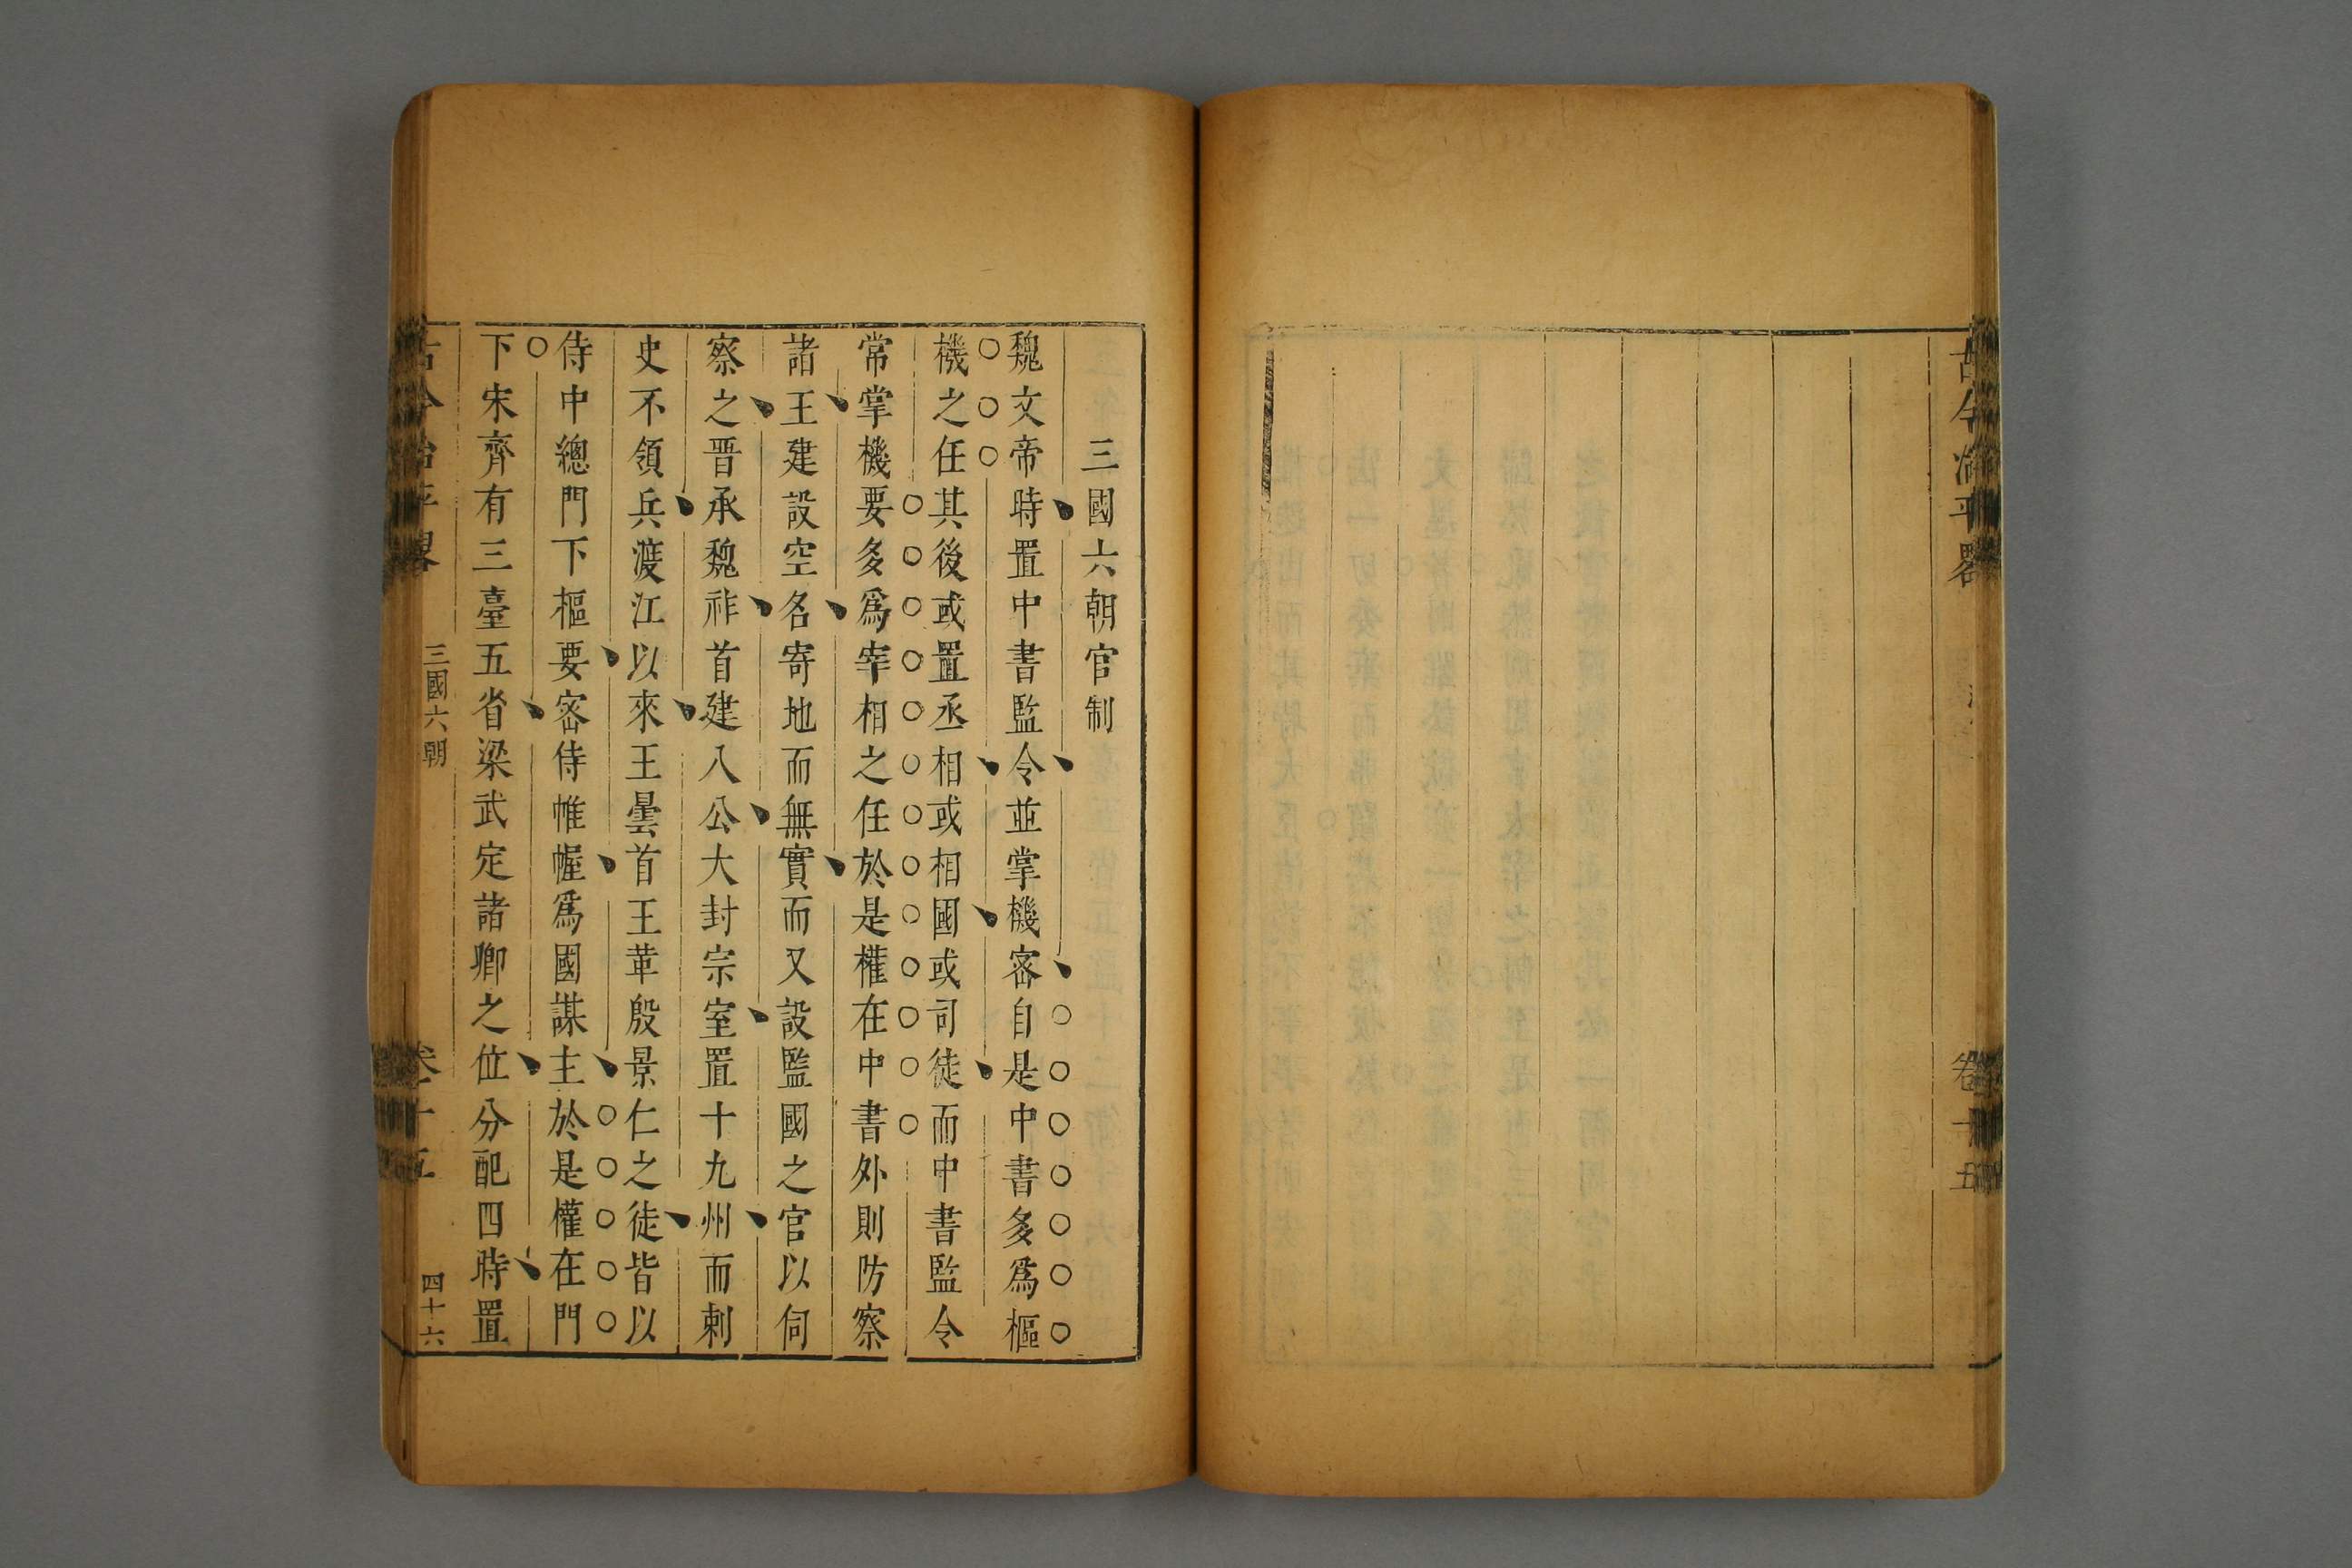 古今治平畧
卷十五
三國六朝官制
魏文帝時置中書監令並掌機密自是中書多爲樞
機之任其後或置丞相或相國或司徒而中書監令
常掌機要多爲宰相之任於是權在中書外則防察
諸王建設空名寄地而無實而又設監國之官以伺
察之晋承魏祚首建八公大封宗室置十九州而刺
史不領兵渡江以來王曇首王華殷景仁之徒皆以
侍中總門下樞要密侍帷幄爲國謀主於是權在門
下宋齊有三臺五省梁武定諸卿之位分配四時置
古今治平畧
三國六朝
卷十五
四十六